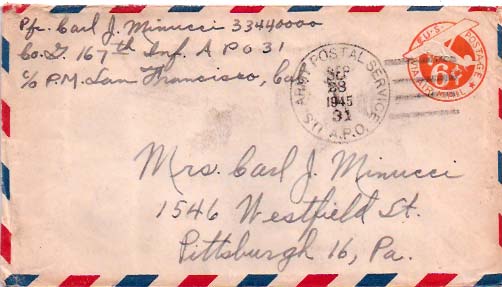 Pfc. Carl J. Minucci 33440000
Co. I. 167th Inf. A P O 31
c/o P.M. San Francisco, Cal
U.S. ARMY POSTAL SERVICE
A.P.O.
SEP
28
1945
31
U.S. POSTAGE
6¢
VIA AIR MAIL
Mrs. Carl J. Minucci
1546 Westfield St.
Pittsburgh 16, Pa.